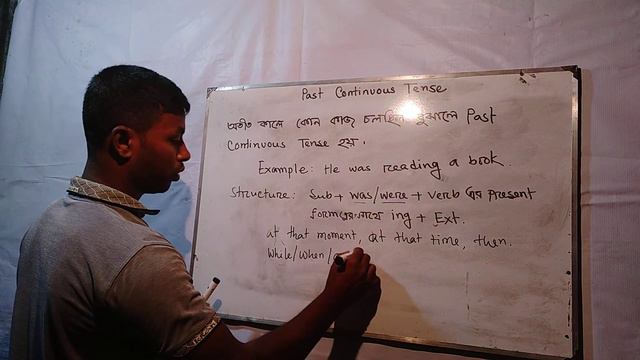 Past Continuous Tense
অতীত কালে কোন কাজ চলছিল বুঝালে Past
Continuous Tense হয়।
Example: He was reading a book.
Structure: Sub + was/were + verb এর Present
form এর সাথে ing + Ext.
at that moment, at that time, then.
While/when/